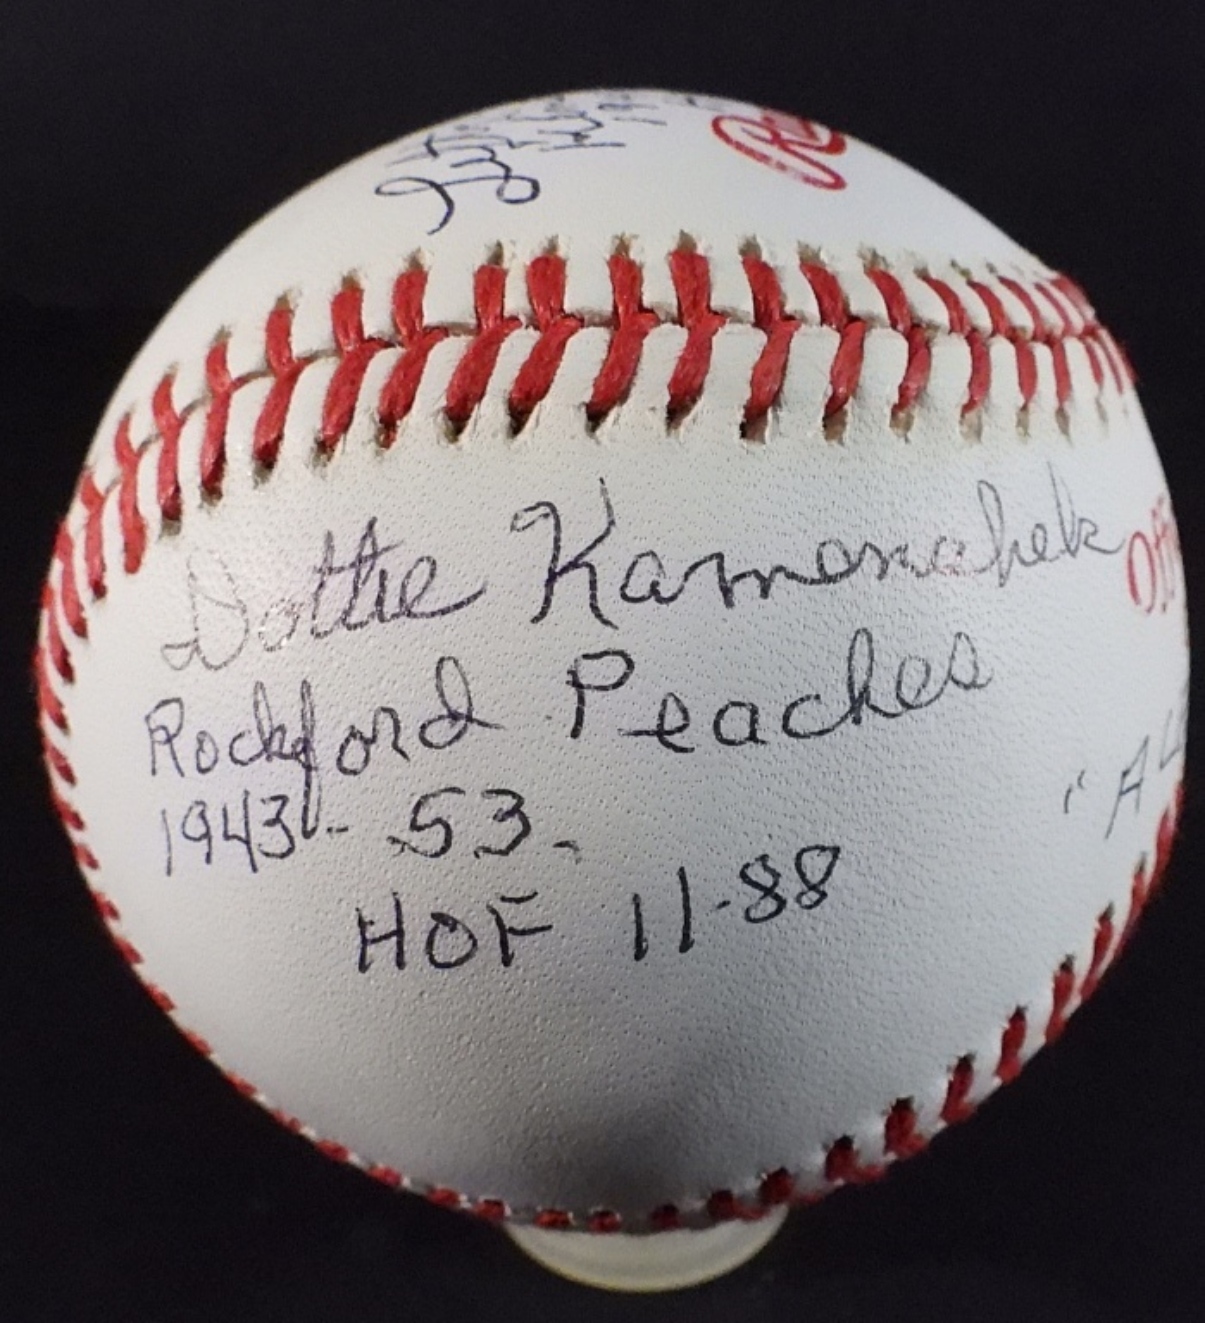 Dottie Kamenshek
Rockford Peaches
1943-53.
HOF 11-88
"AL